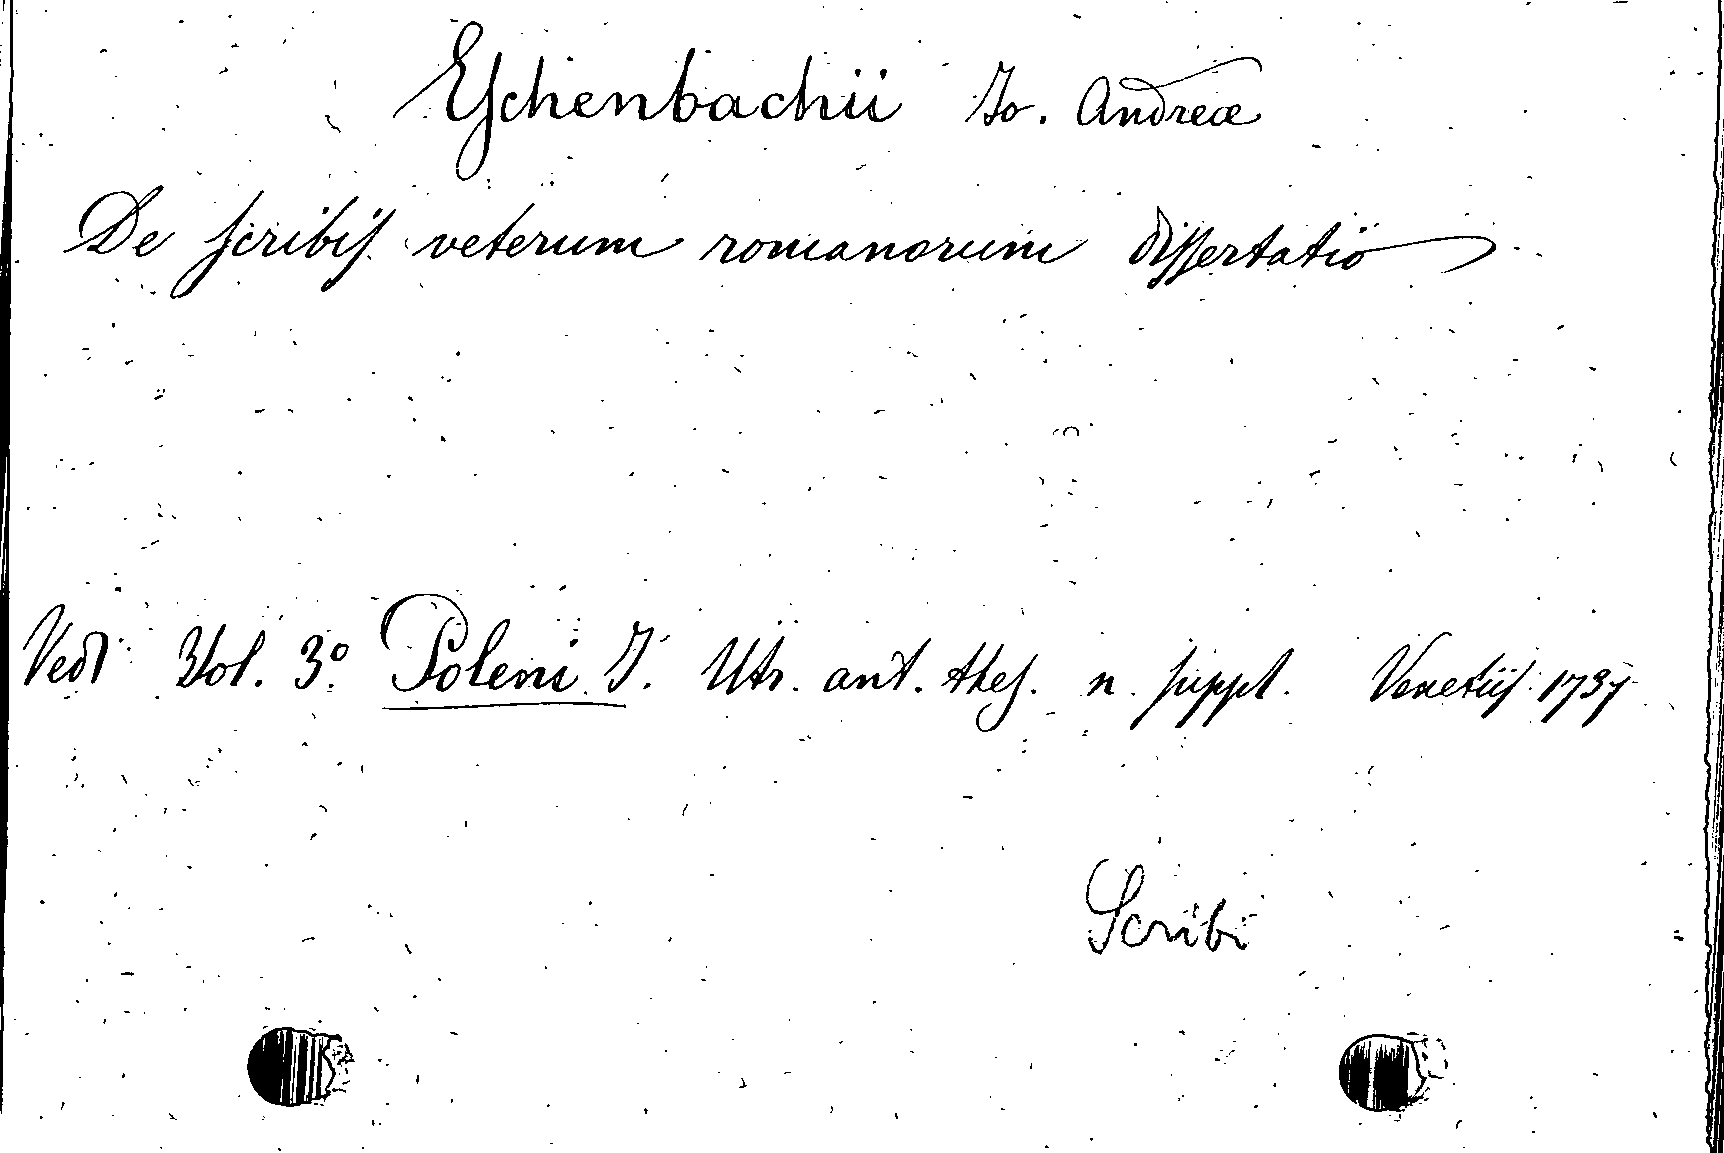 Eschenbachii Io. Andreæ
De scribis veterum romanorum dissertatio
Vedi Vol. 3.º Poleni I. Utr. ant. thes. n. suppl. Venetiis 1737
Scribi